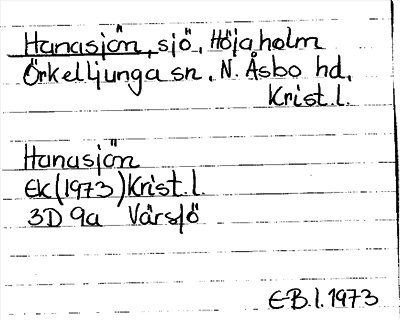 Hanasjön, sjö, Höjaholm
Örkelljunga sn, N. Åsbo hd,
Krist. l.
Hanasjön
Ek (1973) Krist. l.
3D 9a Värsjö
E-B. l. 1973